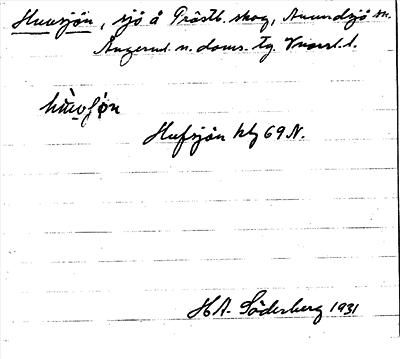 Huusjön, sjö å Prästb. skog, Anundsjö sn.
Ångerml. n. doms. tg. Vnorrl. l.
Hufsjön kbl 69 N.
H A. Söderberg 1931